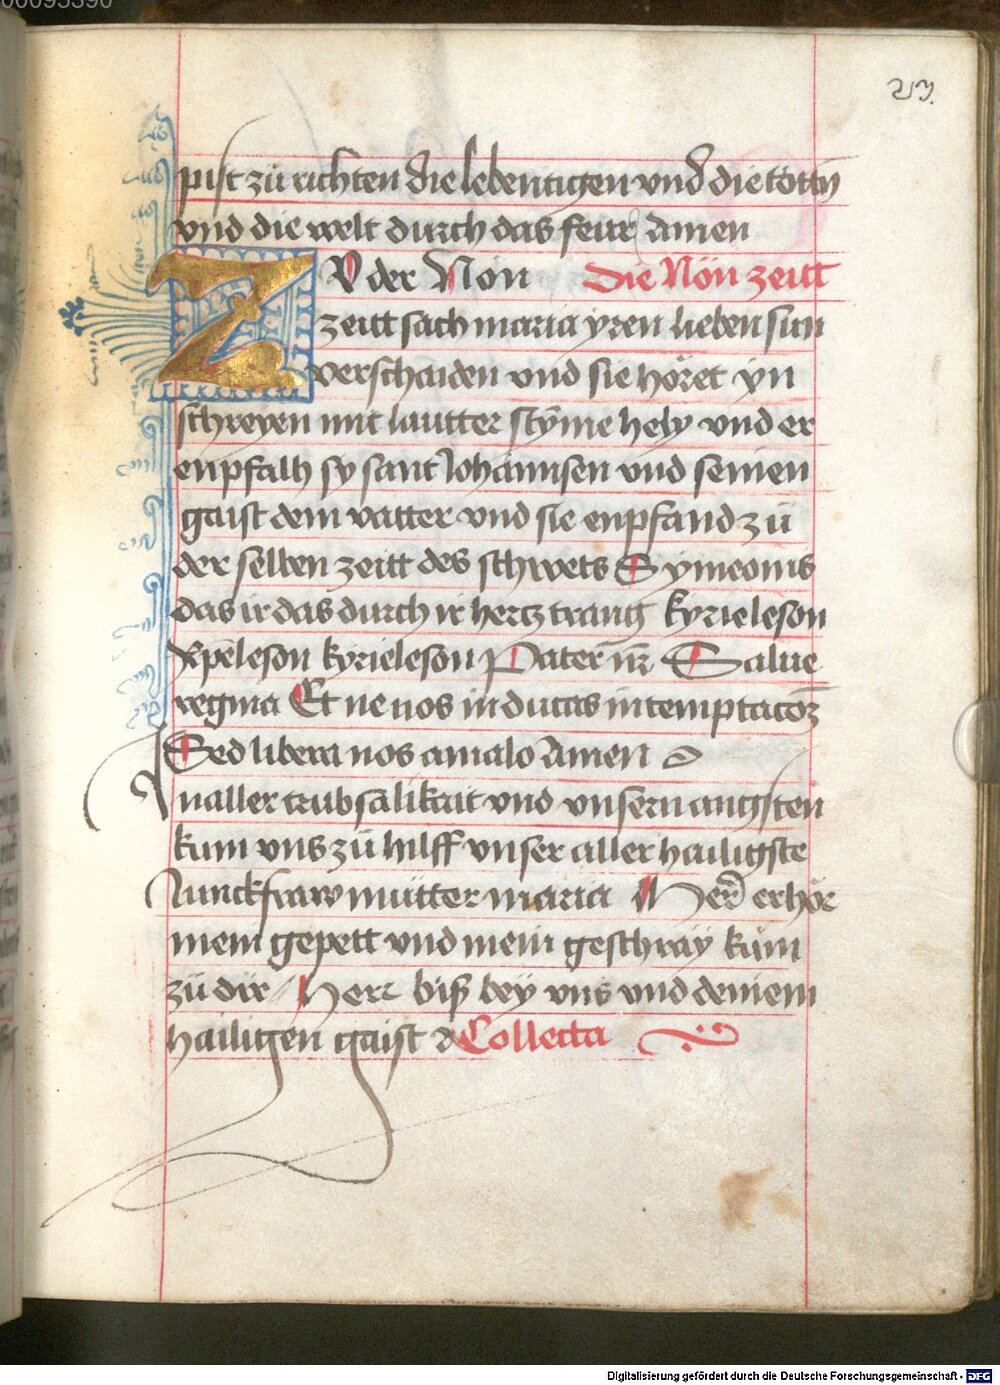 00095390
213.
pist zü richten die lebentigen vnd die tottn̄
vnd die welt durch das feür Amen
ZV der Nön die Nön zeitt
zeitt sach maria yren lieben sun
verschaiden vnd sie höret yn
schreyen mit lautter stȳme hely vnd er
enpfalh sy sant Johannisen vnd seinen
gaist dem vatter vnd sie enpfand zü
der selben zeitt des schwets Symeonis
das ir das durch ir hertz trang kyrieleson
xp̄eleson kyrieleson Pater nr̄ Salue
regina Et ne nos inducas in temptacoȝ
Sed libera nos a malo Amen
In aller trubsälikait vnd vnsern angsten
kum vns zü hilff vnser aller hailigste
Junckfraw mütter maria Her erhör
mein gepett vnd mein geschray kum
zü dir Herr biß bey vns vnd deinem
hailigen gaist Collecta
Digitalisierung gefördert durch die Deutsche Forschungsgemeinschaft - DFG